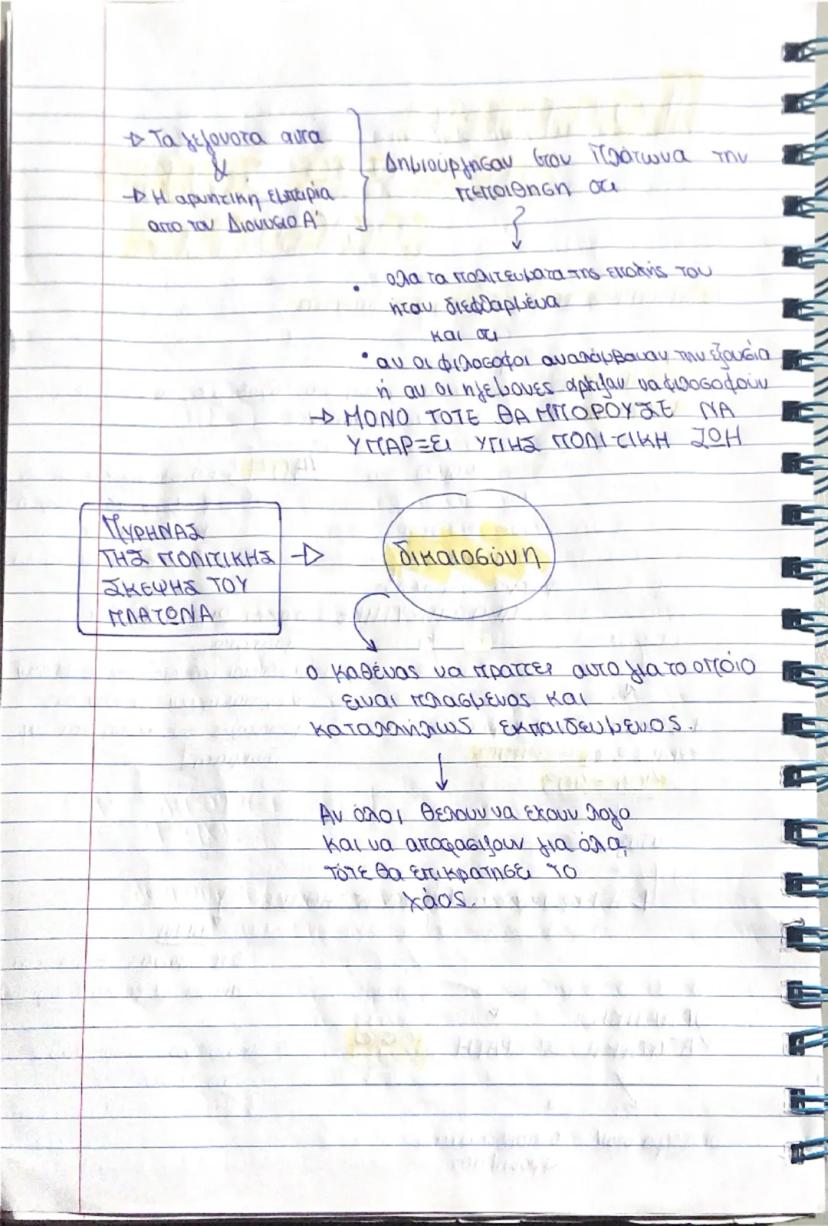 → Τα γεγονοτα αυτα
&
→ Η αρνητική εμπειρία
απο τον Διονυσιο Α'
Δημιούργησαν στον Πλάτωνα την
πεποίθηση οτι
• ολα τα πολιτευματα της εποχής του
ήταν διεφθαρμένα
και οτι
• αν οι φιλοσοφοι αναλάμβαναν την εξουσία
ή αν οι ηγεμονες αρχιζαν να φιλοσοφούν
→ ΜΟΝΟ ΤΟΤΕ ΘΑ ΜΠΟΡΟΥΣΕ ΝΑ
ΥΠΑΡΞΕΙ ΥΓΙΗΣ ΠΟΛΙΤΙΚΗ ΖΩΗ
ΠΥΡΗΝΑΣ
ΤΗΣ ΠΟΛΙΤΙΚΗΣ →
ΣΚΕΨΗΣ ΤΟΥ
ΠΛΑΤΩΝΑ
δικαιοσύνη
ο καθένας να πραττει αυτο για το οποίο
ειναι πλασμενος και
καταλλήλως εκπαιδευμενος.
Αν όλοι θελουν να εχουν λογο
και να αποφασιζουν για όλα,
τότε θα επικρατησει το
χάος.